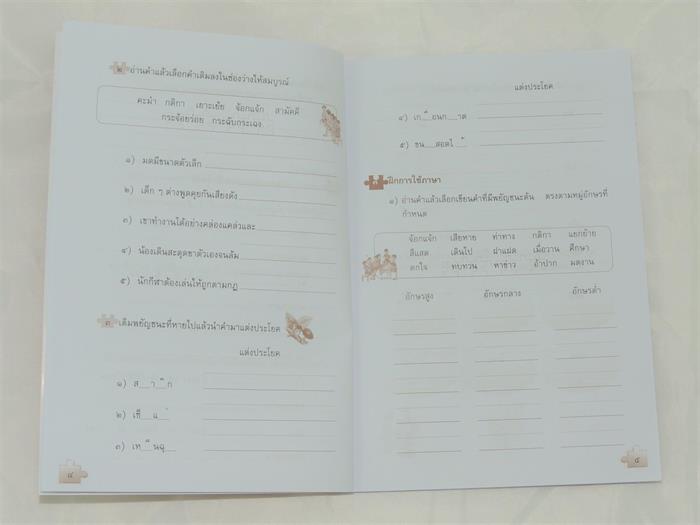 ๒ อ่านคำแล้วเลือกคำเติมลงในช่องว่างให้สมบูรณ์
คะมำ กติกา เยาะเย้ย จ้อกแจ้ก สามัคคี
กระจ้อยร่อย กระฉับกระเฉง
๑) มดมีขนาดตัวเล็ก
๒) เด็ก ๆ ต่างพูดคุยกันเสียงดัง
๓) เขาทำงานได้อย่างคล่องแคล่วและ
๔) น้องเดินสะดุดขาตัวเองจนล้ม
๕) นักกีฬาต้องเล่นให้ถูกตามกฎ
๓ เติมพยัญชนะที่หายไปแล้วนำคำมาแต่งประโยค
แต่งประโยค
๑) ส__า__ ึก
๒) เชื__แ__ ่
๓) เท__ ือนฉุ__
๔
แต่งประโยค
๔) เก__ ื่อนก__าด
๕) ขน__สอดไ__ ้
๓ ฝึกการใช้ภาษา
๑) อ่านคำแล้วเลือกเขียนคำที่มีพยัญชนะต้น ตรงตามหมู่อักษรที่
กำหนด
จ้อกแจ้ก เสียหาย ท่าทาง กติกา แยกย้าย
สีแสด เดินไป ฝาแฝด เมื่อวาน ศึกษา
ตกใจ ทบทวน หาข่าว อ้าปาก ผลงาน
อักษรสูง อักษรกลาง อักษรต่ำ
๕